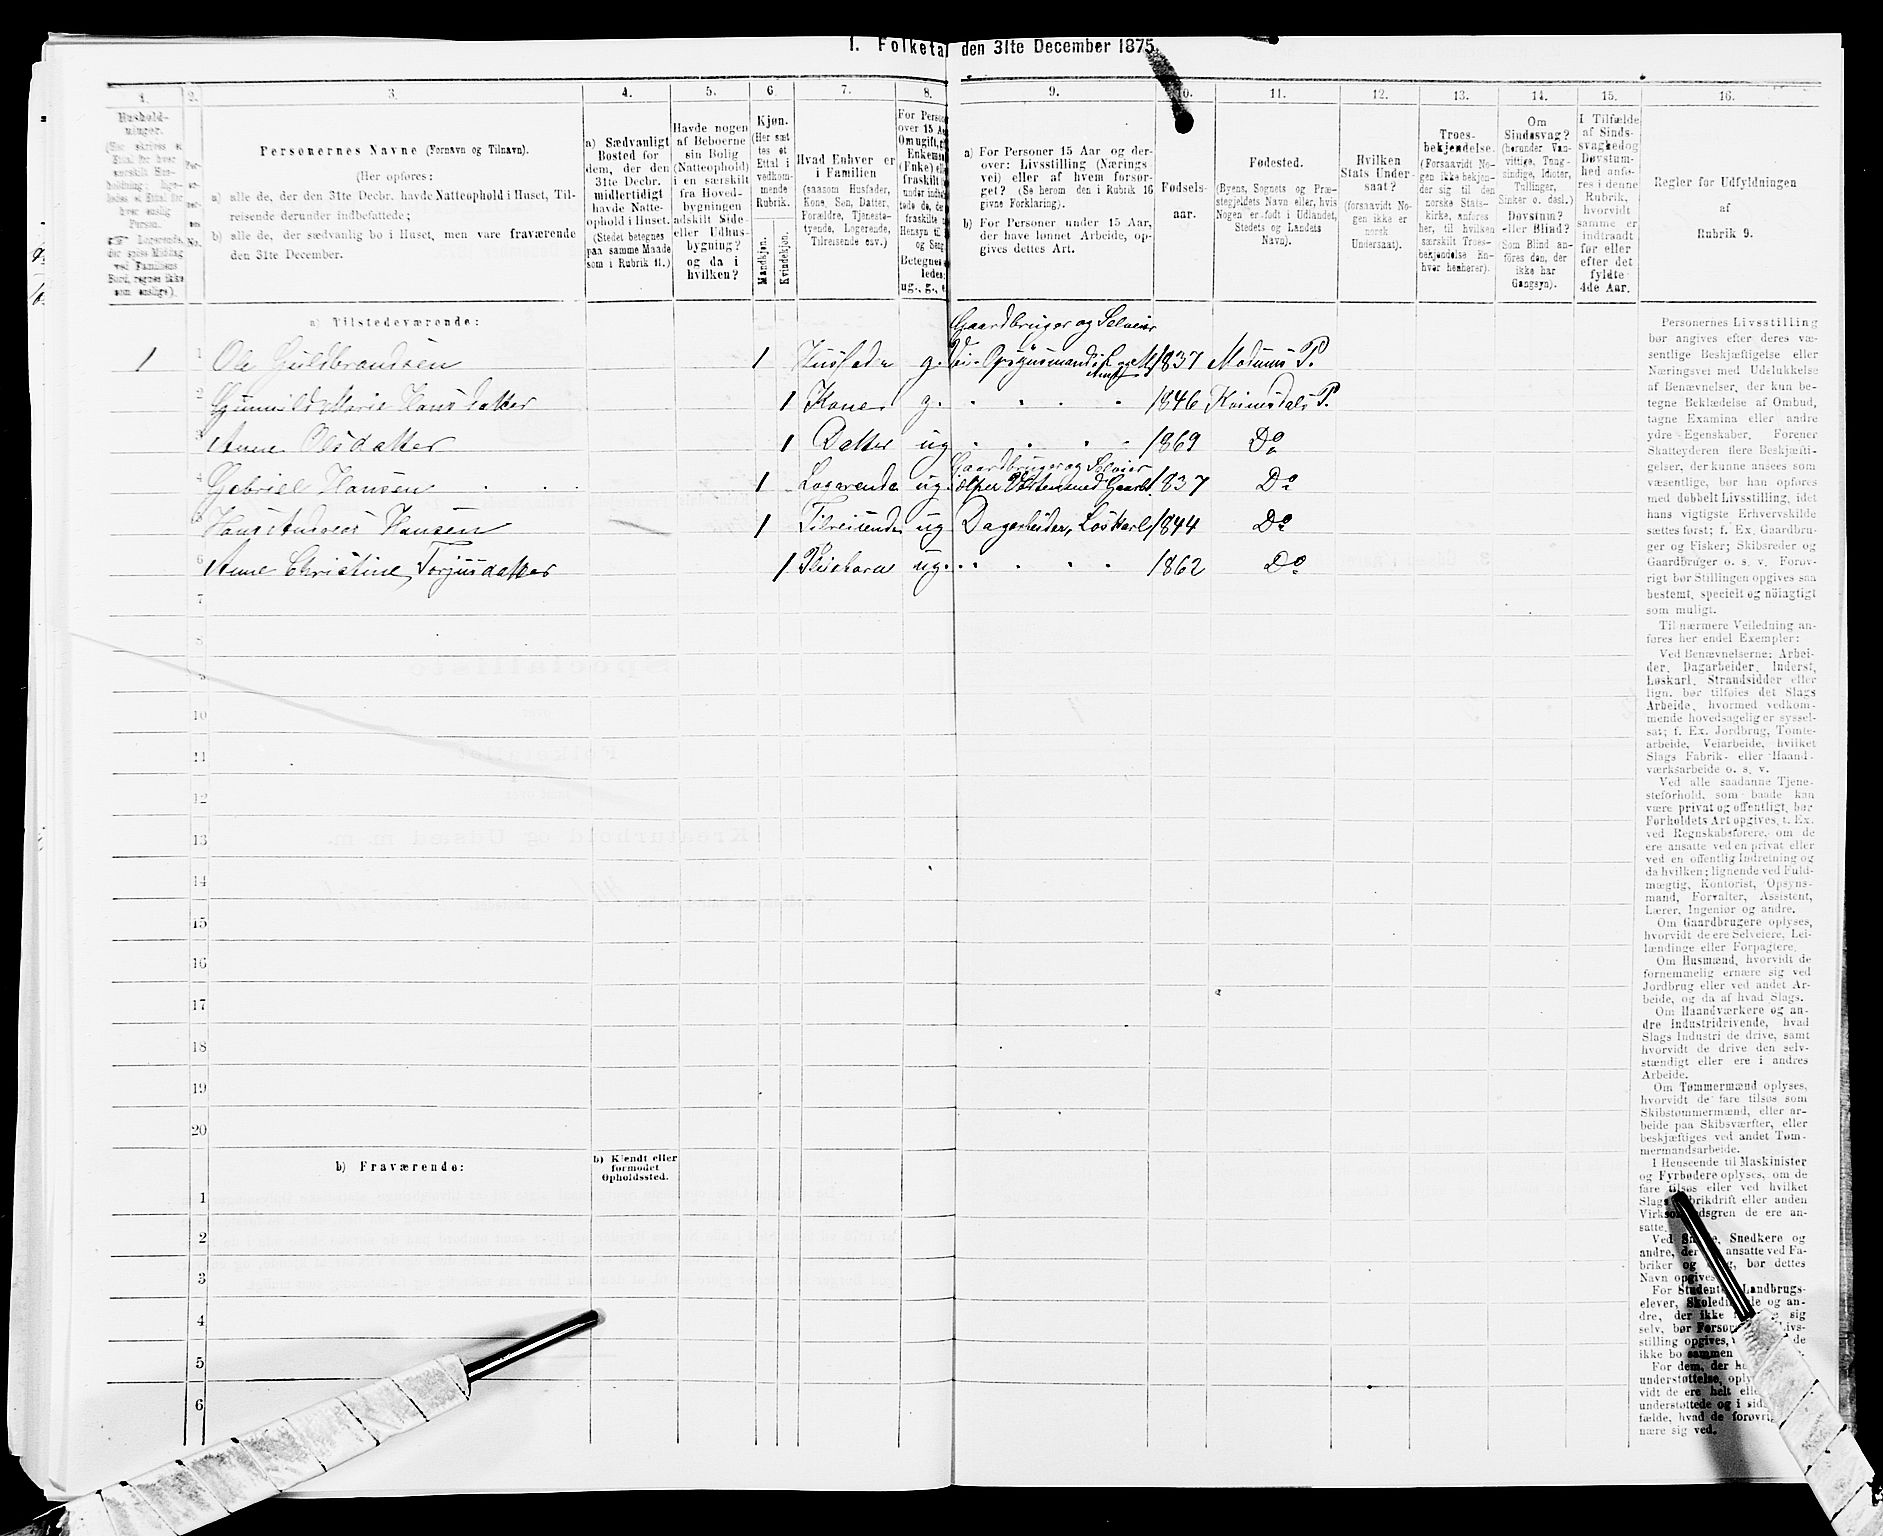 1. Folketal den 31te December 1875.
1. 2. 3. 4. 5. 6. 7. 8. 9. 10. 11. 12. 13. 14. 15. 16.
Hushold-
ninger.
(Her skrives et
Ettal for hver
særskilt Hus-
holdning; lige-
ledes et Ettal for
hver enslig
Person.
☞ Logerende,
der spise Middag
ved Familiens
Bord, regnes ikke
som enslige).
Personernes Navne (Fornavn og Tilnavn).
(Her opføres:
a) alle de, der den 31te Decbr. havde Natteophold i Huset, Til-
reisende derunder indbefattede;
b) alle de, der sædvanlig bo i Huset, men vare fraværende
den 31te December.
a) Sædvanligt
Bosted for
dem, der den
31te Decbr.
midlertidigt
havde Natte-
ophold i Huset.
(Stedet betegnes
paa samme Maade
som i Rubrik 11.)
Havde nogen
af Beboerne
sin Bolig
(Natteophold)
i en særskilt
fra Hoved-
bygningen
adskilt Side-
eller Udhus-
bygning?
og da i
hvilken?
Kjøn.
(Her sæt-
tes et
Ettal i
vedkom-
mende
Rubrik.
Mandkjøn.
Kvindekjøn.
Hvad Enhver er
i Familien
(saasom Husfader,
Kone, Søn, Datter,
Forældre, Tjeneste-
tyende, Logerende,
Tilreisende osv.)
For Person
over 15 Aa
Om ugift, g
Enkema
(Enke) el
fraskilt
under indb
tede de, de
fraskilte
Hensyn til
og Seng
Betegnes
ledes:
ug., g., e
a) For Personer 15 Aar og der-
over: Livsstilling (Nærings-
vei) eller af hvem forsør-
get? (Se herom den i Rubrik 16
givne Forklaring).
b) For Personer under 15 Aar,
der have lønnet Arbeide, op-
gives dettes Art.
Fødsels-
aar.
Fødested.
(Byens, Sognets og Præ-
stegjeldets Navn eller, hvis
Nogen er født i Udlandet,
Stedets og Landets
Navn).
Hvilken
Stats Under-
saat?
(forsaavidt No-
gen ikke er
norsk
Undersaat).
Troes-
bekjendelse.
(Forsaavidt No-
gen ikke bekjen-
der sig til den
norske Stats-
kirke, anføres
her, til hvilken
særskilt Troes-
bekjendelse En-
hver henhører).
Om
Sindssvag?
(herunder Van-
vittige, Tung-
sindige, Idioter,
Tullinger,
Sinker o. desl.)
Døvstum?
eller Blind?
(Som Blind an-
føres den, der
ikke har
Gangsyn).
I Tilfælde
af Sinds-
svaghed og
Døvstum-
hed anfø-
res i denne
Rubrik,
hvorvidt
samme er
indtraadt
før eller
efter det
fyldte
4de Aar.
Regler for Udfyldningen
af
Rubrik 9.
a) Tilstedeværende:
Gaardbruger og Selveier
1 1 Ole Guldbrandsen 1 Husfader g. Opsynsmand 1837 Modums P.
2 Gunnild Marie Hansdatter 1 Kone g. " " " " 1846 Kvinesdals P.
3 Anne Olsdatter 1 Datter ug " " " " 1869 Do
Gaardbruger og Selveier
4 Gabriel Hansen 1 Logerende ug. med Gaardst. 1837 Do
5 Hans Andreas Hansen 1 Tilreisende ug Dagarbeider, Løskarl 1844 Do
6 Anne Christine Torjusdatter 1 Pleiebarn ug. " " " " 1862 Do
7
8
9
10
11
12
13
14
15
16
17
18
19
20
b) Fraværende:
b) Kjendt eller
formodet
Opholdssted.
1
2
3
4
5
6
Personernes Livsstilling
bør angives efter deres væ-
sentlige Beskjæftigelse eller
Næringsvei med Udelukkelse
af Benævnelser, der kun be-
tegne Beklædelse af Ombud,
tagne Examina eller andre
ydre Egenskaber. Forener
Skatteyderen flere Beskjæfti-
gelser, der kunne ansees som
væsentlige, bør han opføres
med dobbelt Livsstilling, idet
hans vigtigste Erhvervskilde
sættes først; f. Ex. Gaardbru-
ger og Fisker; Skibsreder og
Gaardbruger o. s. v. Forøv-
rigt bør Stillingen opgives saa
bestemt, specielt og nöiagtigt
som muligt.
Til nærmere Veiledning an-
føres her endel Exempler:
Ved Benævnelserne: Arbei-
der, Dagarbeider, Inderst,
Løskarl, Strandsidder eller
lign. bør tilføies det Slags
Arbeide, hvormed vedkom-
mende hovedsagelig er syssel-
sat; f. Ex. Jordbrug, Tømte-
arbeide, Veiarbeide, hvilket
Slags Fabrik- eller Haand-
værksarbeide o. s. v.
Ved alle saadanne Tjene-
steforhold, som baade kan
være privat og offentligt, bør
Forholdets Art opgives, t. Ex.
ved Regnskabsførere, om de
ere ansatte ved en privat eller
ved en offentlig Indretning og
da hvilken; lignende ved Fuld-
mægtig, Kontorist, Opsyns-
mand, Forvalter, Assistent,
Lærer, Ingeniør og andre.
Om Gaardbrugere oplyses,
hvorvidt de ere Selveiere, Lei-
lændinge eller Forpagtere.
Om Husmænd, hvorvidt de
fornemmelig ernære sig ved
Jordbrug eller ved andet Ar-
beide, og da af hvad Slags.
Om Haandværkere og an-
dre Industridrivende, hvad
Slags Industri de drive, samt
hvorvidt de drive den selv-
stændigt eller ere i andres
Arbeide.
Om Tømmermænd oplyses,
hvorvidt de fare tilsøs som
Skibstømmermænd, eller ar-
beide paa Skibsværfter, eller
beskjæftiges ved andet Tøm-
mermandsarbeide.
I Henseende til Maskinister
og Fyrbødere oplyses, om de
fare tilsøs eller ved hvilket
Slags Fabrikdrift eller anden
Virksomhedsgren de ere an-
satte.
Ved Smede, Snedkere og
andre, der ere ansatte ved Fa-
briker og Brug, bør dettes
Navn opgives.
For Studenter, Landbrugs-
elever, Skoledisciple og an-
dre, der ikke sig
selv, bør Forsørgerens Livs-
stilling opgives, de
ikke bo sammen
For dem, der
understøttelse,
vidt de ere helt
understøttede og i
fælde, hvad de forøvrigt
nære sig ved.